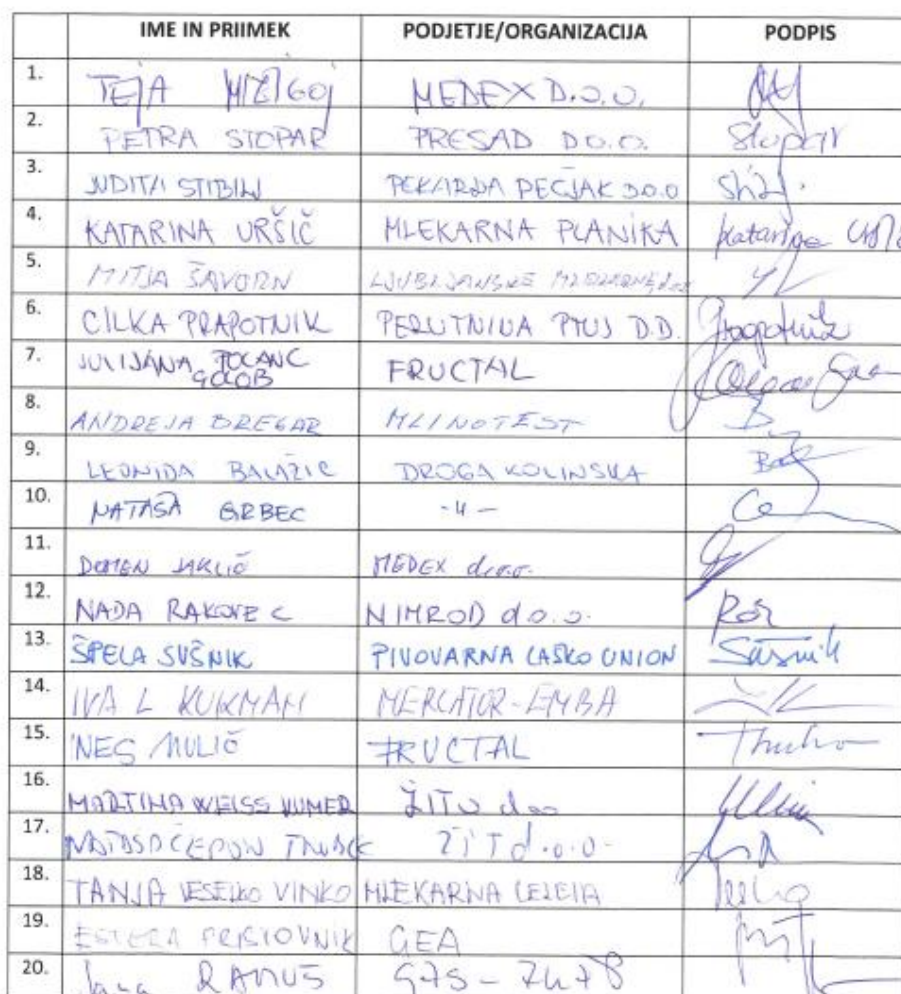 IME IN PRIIMEK PODJETJE/ORGANIZACIJA PODPIS
1. TEJA MIZIGOJ MEDEX D.O.O.
2. PETRA STOPAR PRESAD D.O.O. Stopar
3. JUDITA STIBILJ PEKARNA PEČJAK D.O.O
4. KATARINA URŠIČ MLEKARNA PLANIKA Katarina
5. MITJA ŠAVORN LJUBLJANSKE MLEKARNE, d.o.o.
6. CILKA PRAPOTNIK PERUTNINA PTUJ D.D. Prapotnik
7. JULIJANA POLANC
GOLOB FRUCTAL
8. ANDREJA BREGAR MLINOTEST
9. LEONIDA BALAŽIC DROGA KOLINSKA
10. NATAŠA GRBEC -"-
11. DOMEN JAKLIČ MEDEX d.o.o.
12. NADA RAKOVEC NIMROD d.o.o.
13. ŠPELA SUŠNIK PIVOVARNA LAŠKO UNION Sušnik
14. IVA L KUKMAN MERCATOR-EMBA
15. INES MULIĆ FRUCTAL
16. MARTINA WEISS ŽITO doo
17. NATAŠA ČEPON ŽIT d.o.o.
18. TANJA VESELKO VINKO MLEKARNA CELEIA
19. ESTERA PRISTOVNIK GEA
20. RAMUŠ